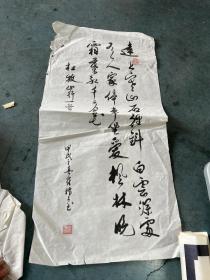 遠上寒山石徑斜白雲深處
有人家停車坐愛楓林晚
霜葉紅於二月花
杜牧山行
甲戌